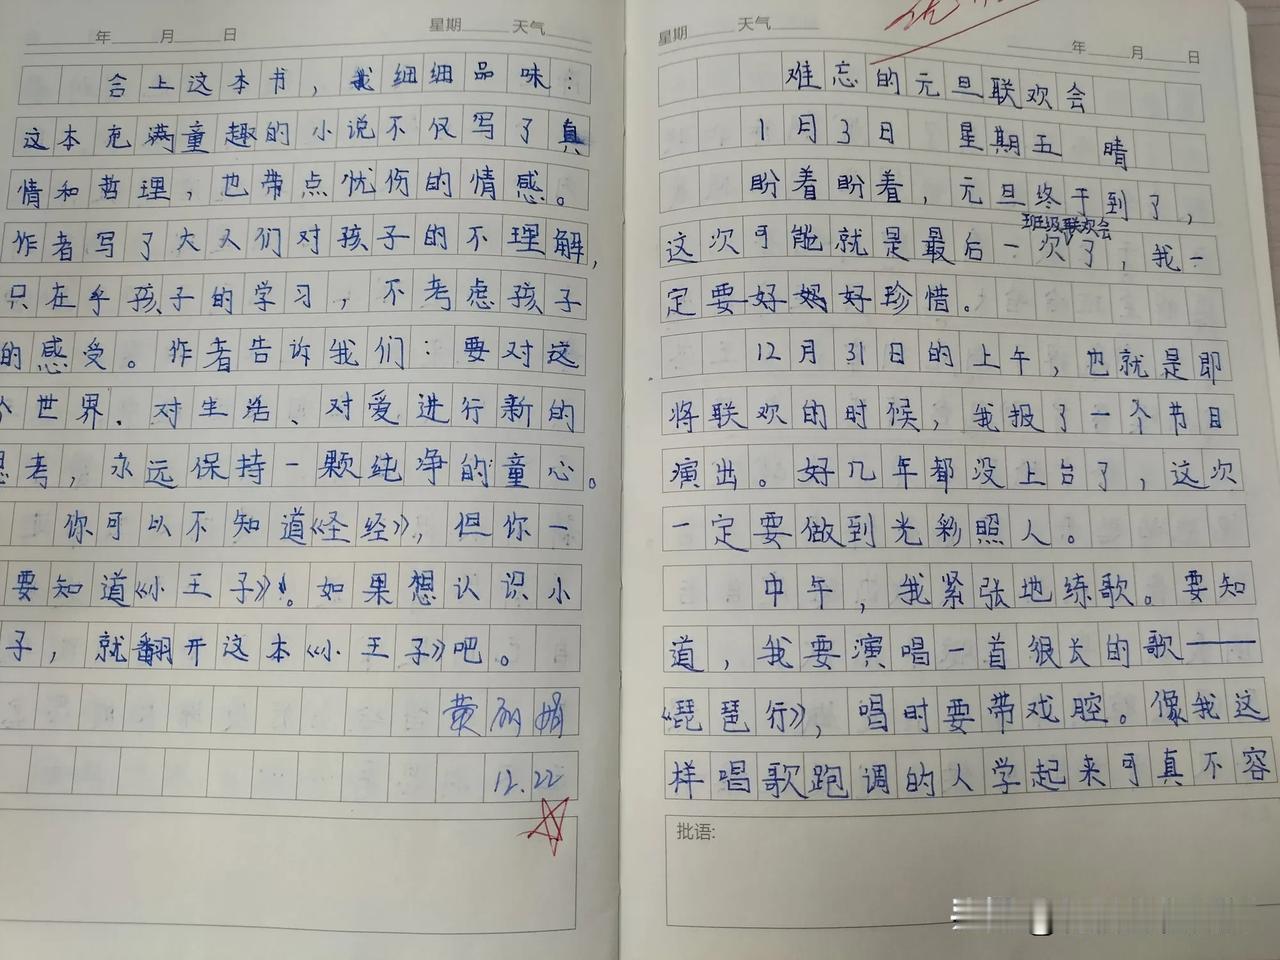 年 月 日 星期 天气
合上这本书，我细细品味：
这本充满童趣的小说不仅写了真
情和哲理，也带点忧伤的情感。
作者写了大人们对孩子的不理解，
只在乎孩子的学习，不考虑孩子
的感受。作者告诉我们：要对这
个世界、对生活、对爱进行新的
思考，永远保持一颗纯净的童心。
你可以不知道《圣经》，但你一
要知道《小王子》！。如果想认识小
子，就翻开这本《小王子》吧。
12.22
星期 天气 年 月 日
难忘的元旦联欢会
1月3日 星期五 晴
盼着盼着，元旦终于到了，
班级联欢会
这次可能就是最后一次了，我一
定要好好珍惜。
12月31日的上午，也就是即
将联欢的时候，我报了一个节目
演出。好几年都没上台了，这次
一定要做到光彩照人。
中午，我紧张地练歌。要知
道，我要演唱一首很长的歌——
《琵琶行》，唱时要带戏腔。像我这
样唱歌跑调的人学起来可真不容
批语: